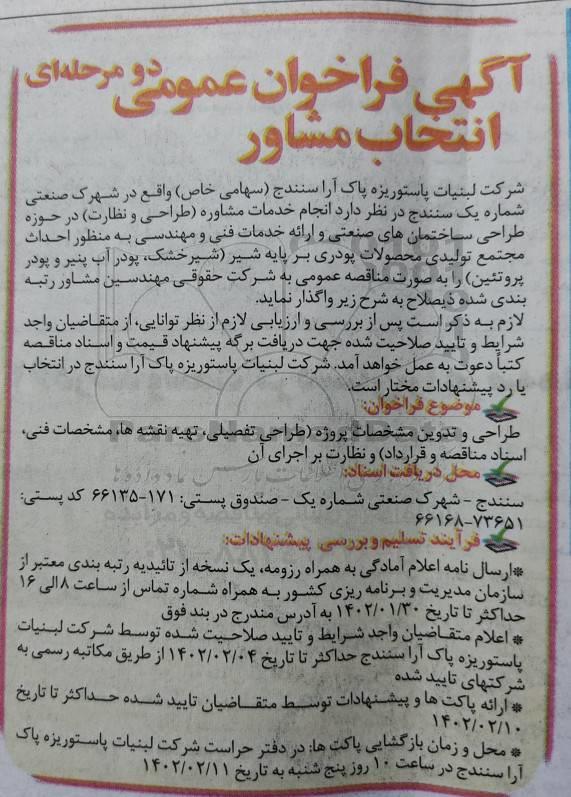 آگهی فراخوان عمومی دو مرحله‌ای
انتخاب مشاور
شرکت لبنیات پاستوریزه پاک آرا سنندج (سهامی خاص) واقع در شهرک صنعتی
شماره یک سنندج در نظر دارد انجام خدمات مشاوره (طراحی و نظارت) در حوزه
طراحی ساختمان های صنعتی و ارائه خدمات فنی و مهندسی به منظور احداث
مجتمع تولیدی محصولات پودری بر پایه شیر (شیرخشک، پودر آب پنیر و پودر
پروتئین) را به صورت مناقصه عمومی به شرکت حقوقی مهندسین مشاور رتبه
بندی شده ذیصلاح به شرح زیر واگذار نماید.
لازم به ذکر است پس از بررسی و ارزیابی لازم از نظر توانایی، از متقاضیان واجد
شرایط و تایید صلاحیت شده جهت دریافت برگه پیشنهاد قیمت و اسناد مناقصه
کتباً دعوت به عمل خواهد آمد. شرکت لبنیات پاستوریزه پاک آرا سنندج در انتخاب
یا رد پیشنهادات مختار است.
موضوع فراخوان:
طراحی و تدوین مشخصات پروژه (طراحی تفصیلی، تهیه نقشه ها، مشخصات فنی،
اسناد مناقصه و قرارداد) و نظارت بر اجرای آن
محل دریافت اسناد:
سنندج - شهرک صنعتی شماره یک - صندوق پستی: ۱۷۱-۶۶۱۳۵ کد پستی:
۷۳۶۵۱-۶۶۱۶۸
فرآیند تسلیم و بررسی پیشنهادات:
*ارسال نامه اعلام آمادگی به همراه رزومه، یک نسخه از تائیدیه رتبه بندی معتبر از
سازمان مدیریت و برنامه ریزی کشور به همراه شماره تماس از ساعت ۸ الی ۱۶
حداکثر تا تاریخ ۱۴۰۲/۰۱/۳۰ به آدرس مندرج در بند فوق
* اعلام متقاضیان واجد شرایط و تایید صلاحیت شده توسط شرکت لبنیات
پاستوریزه پاک آرا سنندج حداکثر تا تاریخ ۱۴۰۲/۰۲/۰۴ از طریق مکاتبه رسمی به
شرکتهای تایید شده
* ارائه پاکت ها و پیشنهادات توسط متقاضیان تایید شده حداکثر تا تاریخ
۱۴۰۲/۰۲/۱۰
* محل و زمان بازگشایی پاکت ها: در دفتر حراست شرکت لبنیات پاستوریزه پاک
آرا سنندج در ساعت ۱۰ روز پنج شنبه به تاریخ ۱۴۰۲/۰۲/۱۱